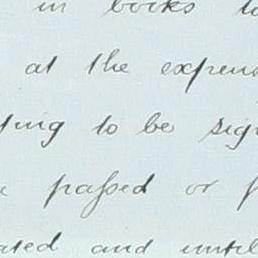 in books to
at the expens
ting to be sig
passed or f
ated and until